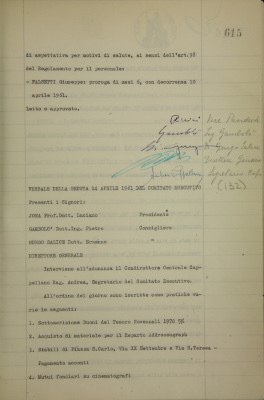 615
di aspettativa per motivi di salute, ai sensi dell'art.28
del Regolamento per il personale:
- FALCETTI Giuseppe: proroga di mesi 6, con decorrenza 10
aprile 1951.
Letto e approvato.
Vice Presidente
Ing Gambolò
(132)
VERBALE DELLA SEDUTA 24 APRILE 1951 DEL COMITATO ESECUTIVO
Presenti i Signori:
JONA Prof.Dott. Luciano Presidente
GAMBOLO' Dott.Ing. Pietro Consigliere
SURGO SALICE Dott. Ermanno
DIRETTORE GENERALE
Interviene all'adunanza il Condirettore Centrale Cap-
pellano Rag. Andrea, Segretario del Comitato Esecutivo.
All'ordine del giorno sono iscritte come pratiche va-
rie le seguenti:
1. Sottoscrizione Buoni del Tesoro Novennali 1970 5%
2. Acquisto di materiale per il Reparto Addressograph
3. Stabili di Piazza S.Carlo, Via XX Settembre e Via S.Teresa -
Pagamento acconti
4. Mutui fondiari su cinematografi